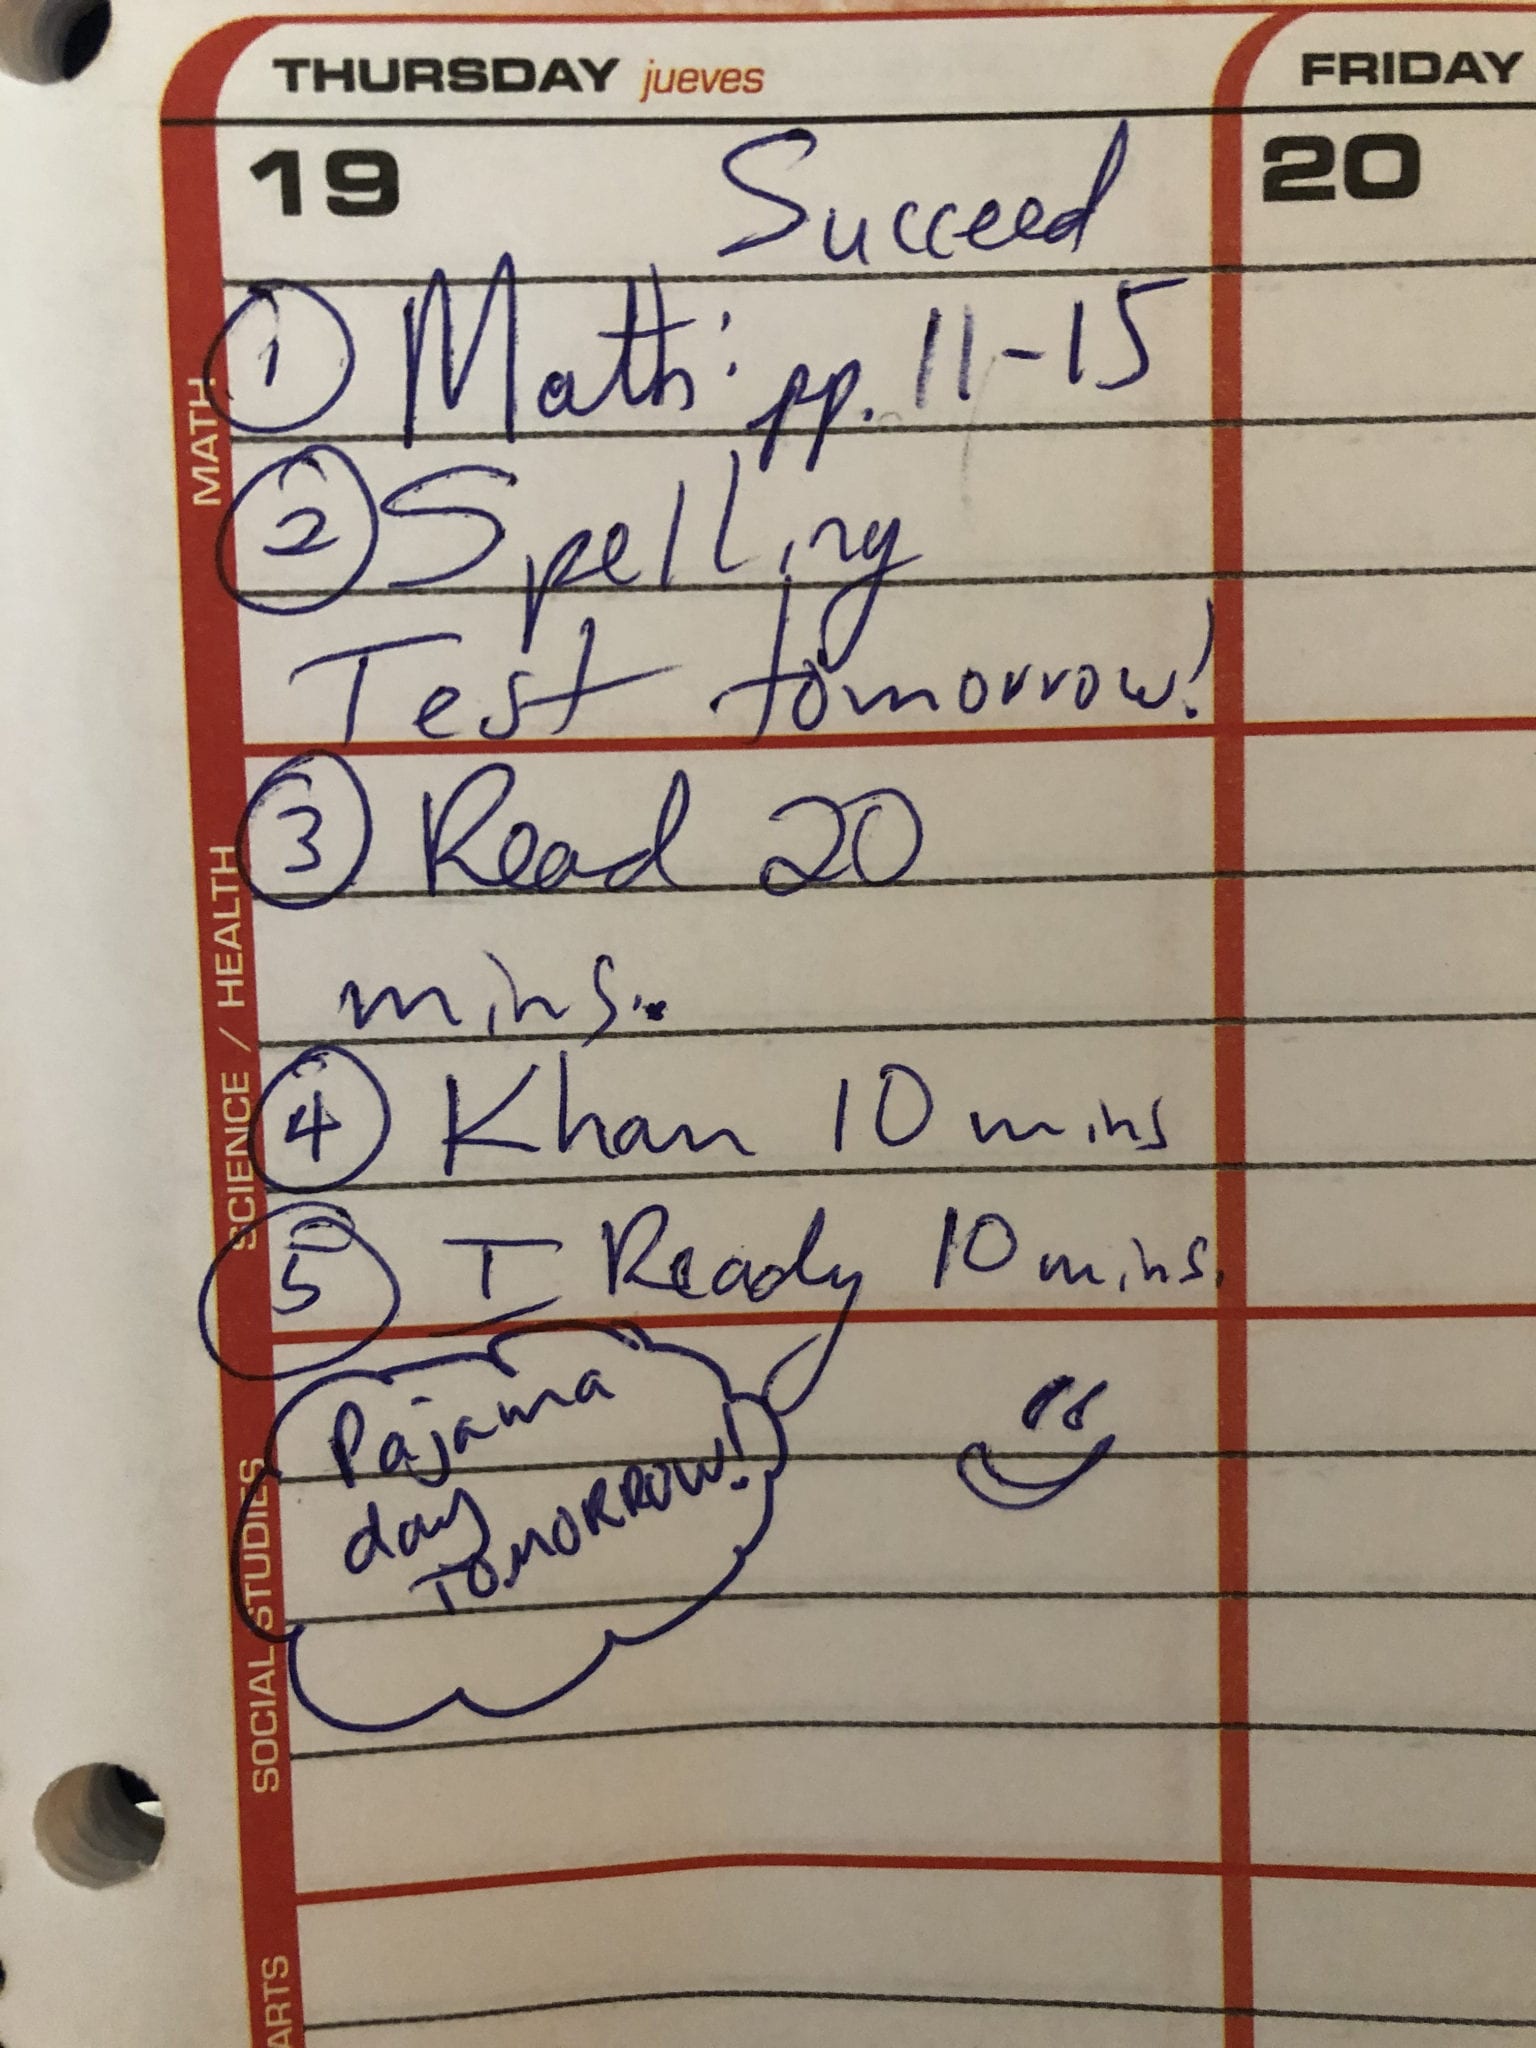 THURSDAY jueves
FRIDAY
19 Succeed
20
MATH
① Math: pp. 11-15
② Spelling
Test tomorrow!
SCIENCE / HEALTH
③ Read 20
mins.
④ Khan 10 mins
⑤ I Ready 10 mins.
SOCIAL STUDIES
Pajama
day
TOMORROW!
ARTS